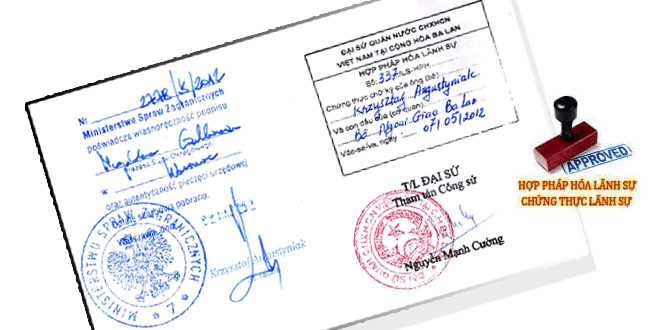 Nr 2778/K/2012
Ministerstwo Spraw Zagranicznych
poświadcza własnoręczność podpisu
Prezesa Sądu Okręgowego
w Warszawie
oraz autentyczność pieczęci urzędowej
pobrano.
Warszawa, dnia
MINISTERSTWO SPRAW ZAGRANICZNYCH
* 7 *
Krzysztof Augustyniak
ĐẠI SỨ QUÁN NƯỚC CHXHCN
VIỆT NAM TẠI CỘNG HÒA BA LAN
HỢP PHÁP HÓA LÃNH SỰ
Số: 337/LS-HPH
Chứng thực chữ ký của ông (bà)
Krzysztof Augustyniak
Và con dấu của (cơ quan)
Bộ Ngoại Giao Ba Lan
Vác-sa-va, ngày 07/05/2012
T/L ĐẠI SỨ
Tham tán Công sứ
Nguyễn Mạnh Cường
APPROVED
HỢP PHÁP HÓA LÃNH SỰ
CHỨNG THỰC LÃNH SỰ